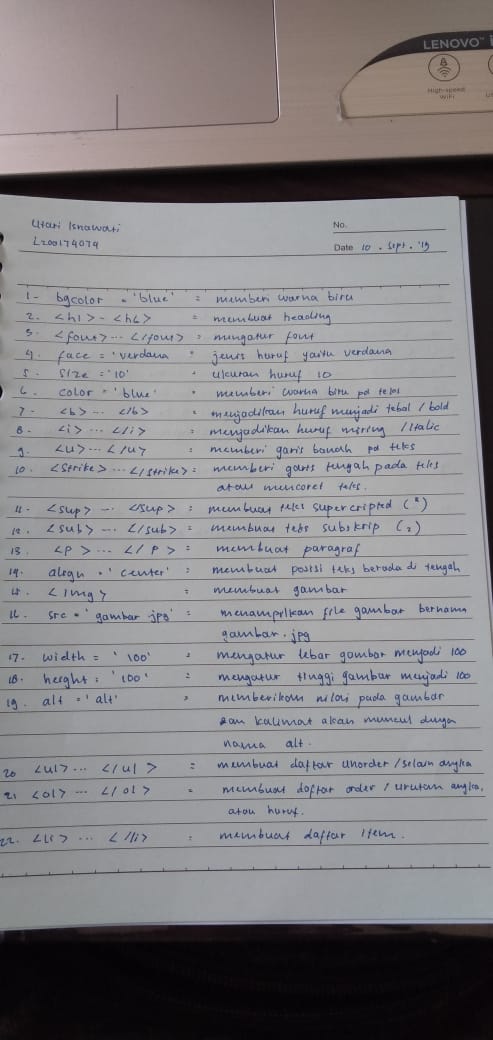 LENOVO
High-speed
WiFi
Utari Isnawati
L200174079
No.
Date 10 . Sept . '19
1- bgcolor = 'blue' = memberi warna biru
2. <h1> - <h6> = membuat heading
3. <font> ... </font> = mengatur font
4. face = 'verdana' = jenis huruf yaitu verdana
5. size = '10' = ukuran huruf 10
6. color = 'blue' = memberi warna biru pd teks
7. <b> ... </b> = menjadikan huruf menjadi tebal / bold
8. <i> ... </i> = menjadikan huruf miring / Italic
9. <u> ... </u> = memberi garis bawah pd teks
10. <strike> ... </strike> = memberi garis tengah pada teks
atau mencoret teks.
11. <sup> ... </sup> = membuat teks superscripted (²)
12. <sub> ... </sub> = membuat teks subskrip (₂)
13. <p> ... </p> = membuat paragraf
14. align = 'center' = membuat posisi teks berada di tengah
15. <img> = membuat gambar
16. src = 'gambar.jpg' = menampilkan file gambar bernama
gambar.jpg
17. width = '100' = mengatur lebar gambar menjadi 100
18. height = '100' = mengatur tinggi gambar menjadi 100
19. alt = 'alt' = memberikan nilai pada gambar
dan kalimat akan muncul dengan
nama alt.
20 <ul> ... </ul> = membuat daftar unorder / selain angka
21. <ol> ... </ol> = membuat daftar order / urutan angka,
atau huruf.
22. <li> ... </li> = membuat daftar item.